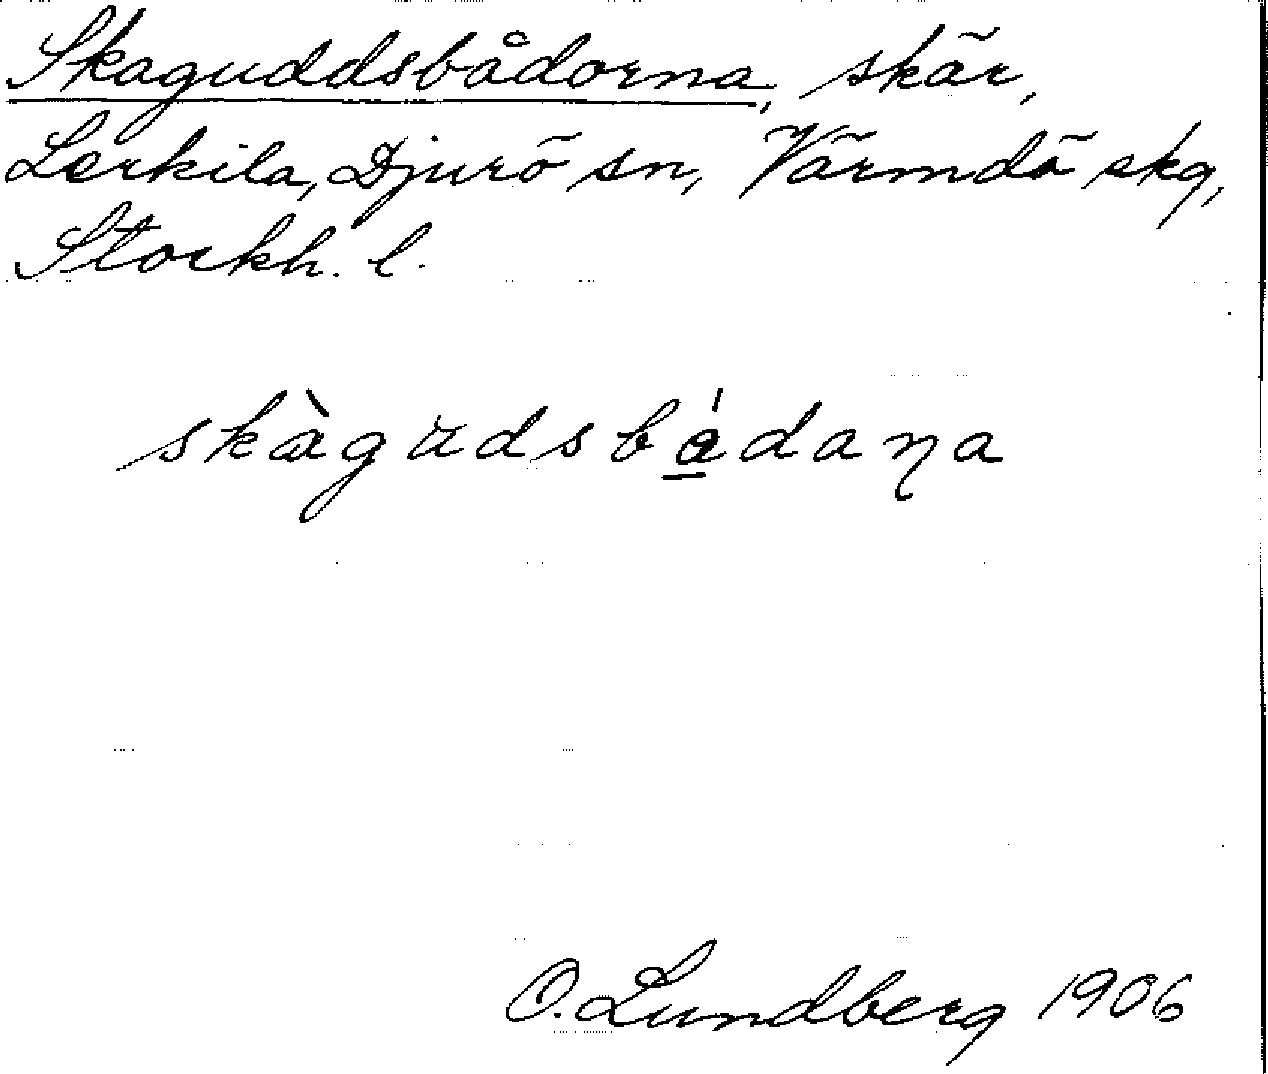 Skaguddsbådorna, skär,
Lerkila, Djurö sn, Värmdö skg,
Stockh. l.
skàgudsbádaŋa
O. Lundberg 1906